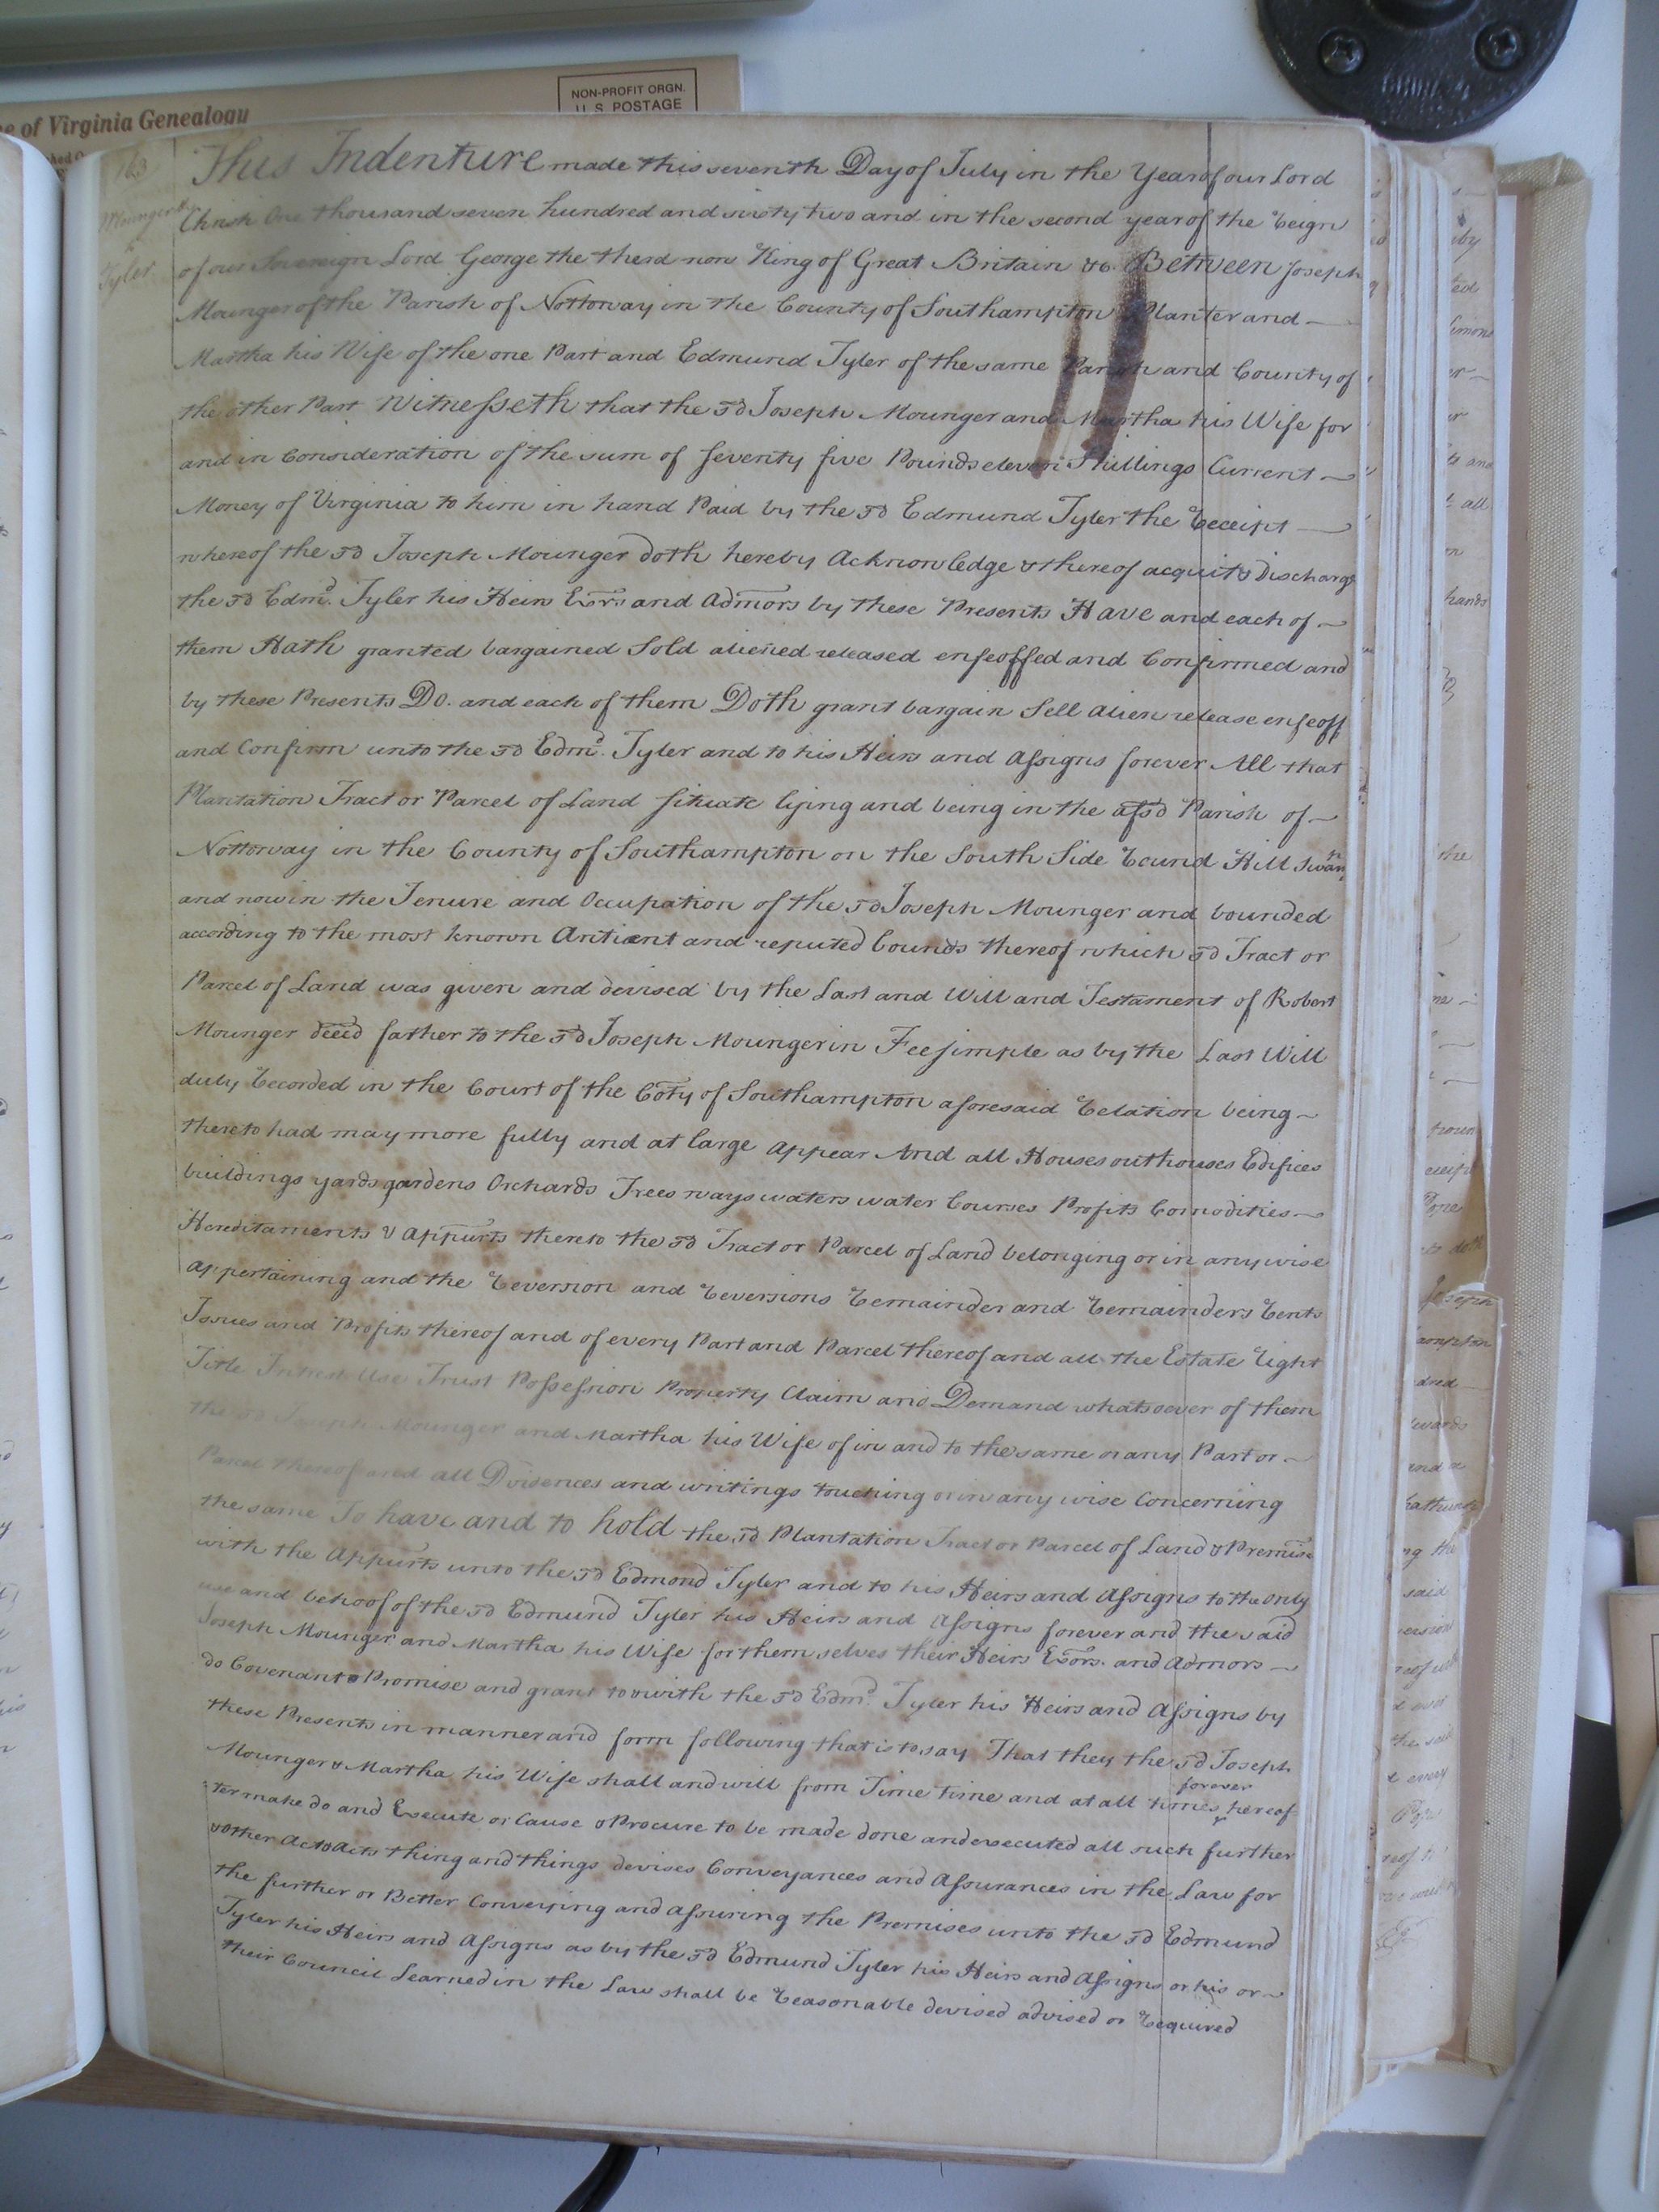 e of Virginia Genealogy
NON-PROFIT ORGN.
U. S. POSTAGE
163
Mounger
Tyler
This Indenture made this seventh Day of July in the Year of our Lord
Christ One thousand seven hundred and sixty two and in the second year of the Reign
of our Sovereign Lord George the therd now King of Great Britain &c. Between Joseph
Mounger of the Parish of Nottoway in the County of Southampton Planter and
Martha his Wife of the one Part and Edmund Tyler of the same Parish and County of
the other Part Witnesseth that the sd Joseph Mounger and Martha his Wife for
and in Consideration of the sum of seventy five Pounds eleven Shillings Current
Money of Virginia to him in hand Paid by the sd Edmund Tyler the Receipt
whereof the sd Joseph Mounger doth hereby Acknowledge & thereof acquit & Discharge
the sd Edmd. Tyler his Heirs Exrs and Admors by these Presents Have and each of
them Hath granted bargained Sold aliened released enfeoffed and Confirmed and
by these Presents Do. and each of them Doth grant bargain Sell alien release enfeoff
and Confirm unto the sd Edmd. Tyler and to his Heirs and Assigns forever All that
Plantation Tract or Parcel of Land situate lying and being in the afsd Parish of
Nottoway in the County of Southampton on the South Side Round Hill Swamp
and now in the Tenure and Occupation of the sd Joseph Mounger and bounded
according to the most known Antient and reputed bounds thereof which sd Tract or
Parcel of Land was given and devised by the Last and Will and Testament of Robert
Mounger deced father to the sd Joseph Mounger in Fee simple as by the Last Will
duly Recorded in the Court of the Coty of Southampton aforesaid Relation being
thereto had may more fully and at large appear And all Houses outhouses Edifices
buildings yards gardens Orchards Trees ways waters water Courses Profits Comodities
Hereditaments & appurts thereto the sd Tract or Parcel of Land belonging or in any wise
appertaining and the Reversion and Reversions Remainder and Remainders Rents
Issues and Profits thereof and of every Part and Parcel thereof and all the Estate Right
Title Intrest Use Trust Possession Property Claim and Demand whatsoever of them
the sd Joseph Mounger and Martha his Wife of in and to the same or any Part or
Parcel thereof and all Dvidences and writings touching or in any wise Concerning
the same To have and to hold the sd Plantation Tract or Parcel of Land & Premise
with the Appurts unto the sd Edmond Tyler and to his Heirs and Assigns to the only
use and behoof of the sd Edmund Tyler his Heirs and Assigns forever and the said
Joseph Mounger and Martha his Wife for them selves their Heirs Exors. and Admors
do Covenant & Promise and grant to & with the sd Edmd. Tyler his Heirs and Assigns by
these Presents in manner and form following that is to say That they the sd Joseph
Mounger & Martha his Wife shall and will from Time time and at all times forever hereaf
ter make do and Execute or Cause & Procure to be made done and executed all such further
& other Act & Acts thing and things devises Conveyances and Assurances in the Law for
the further or Better Conveying and assuring the Premises unto the sd Edmund
Tyler his Heirs and Assigns as by the sd Edmund Tyler his Heirs and Assigns or his or
their Council Learned in the Law shall be Reasonable devised advised or Required